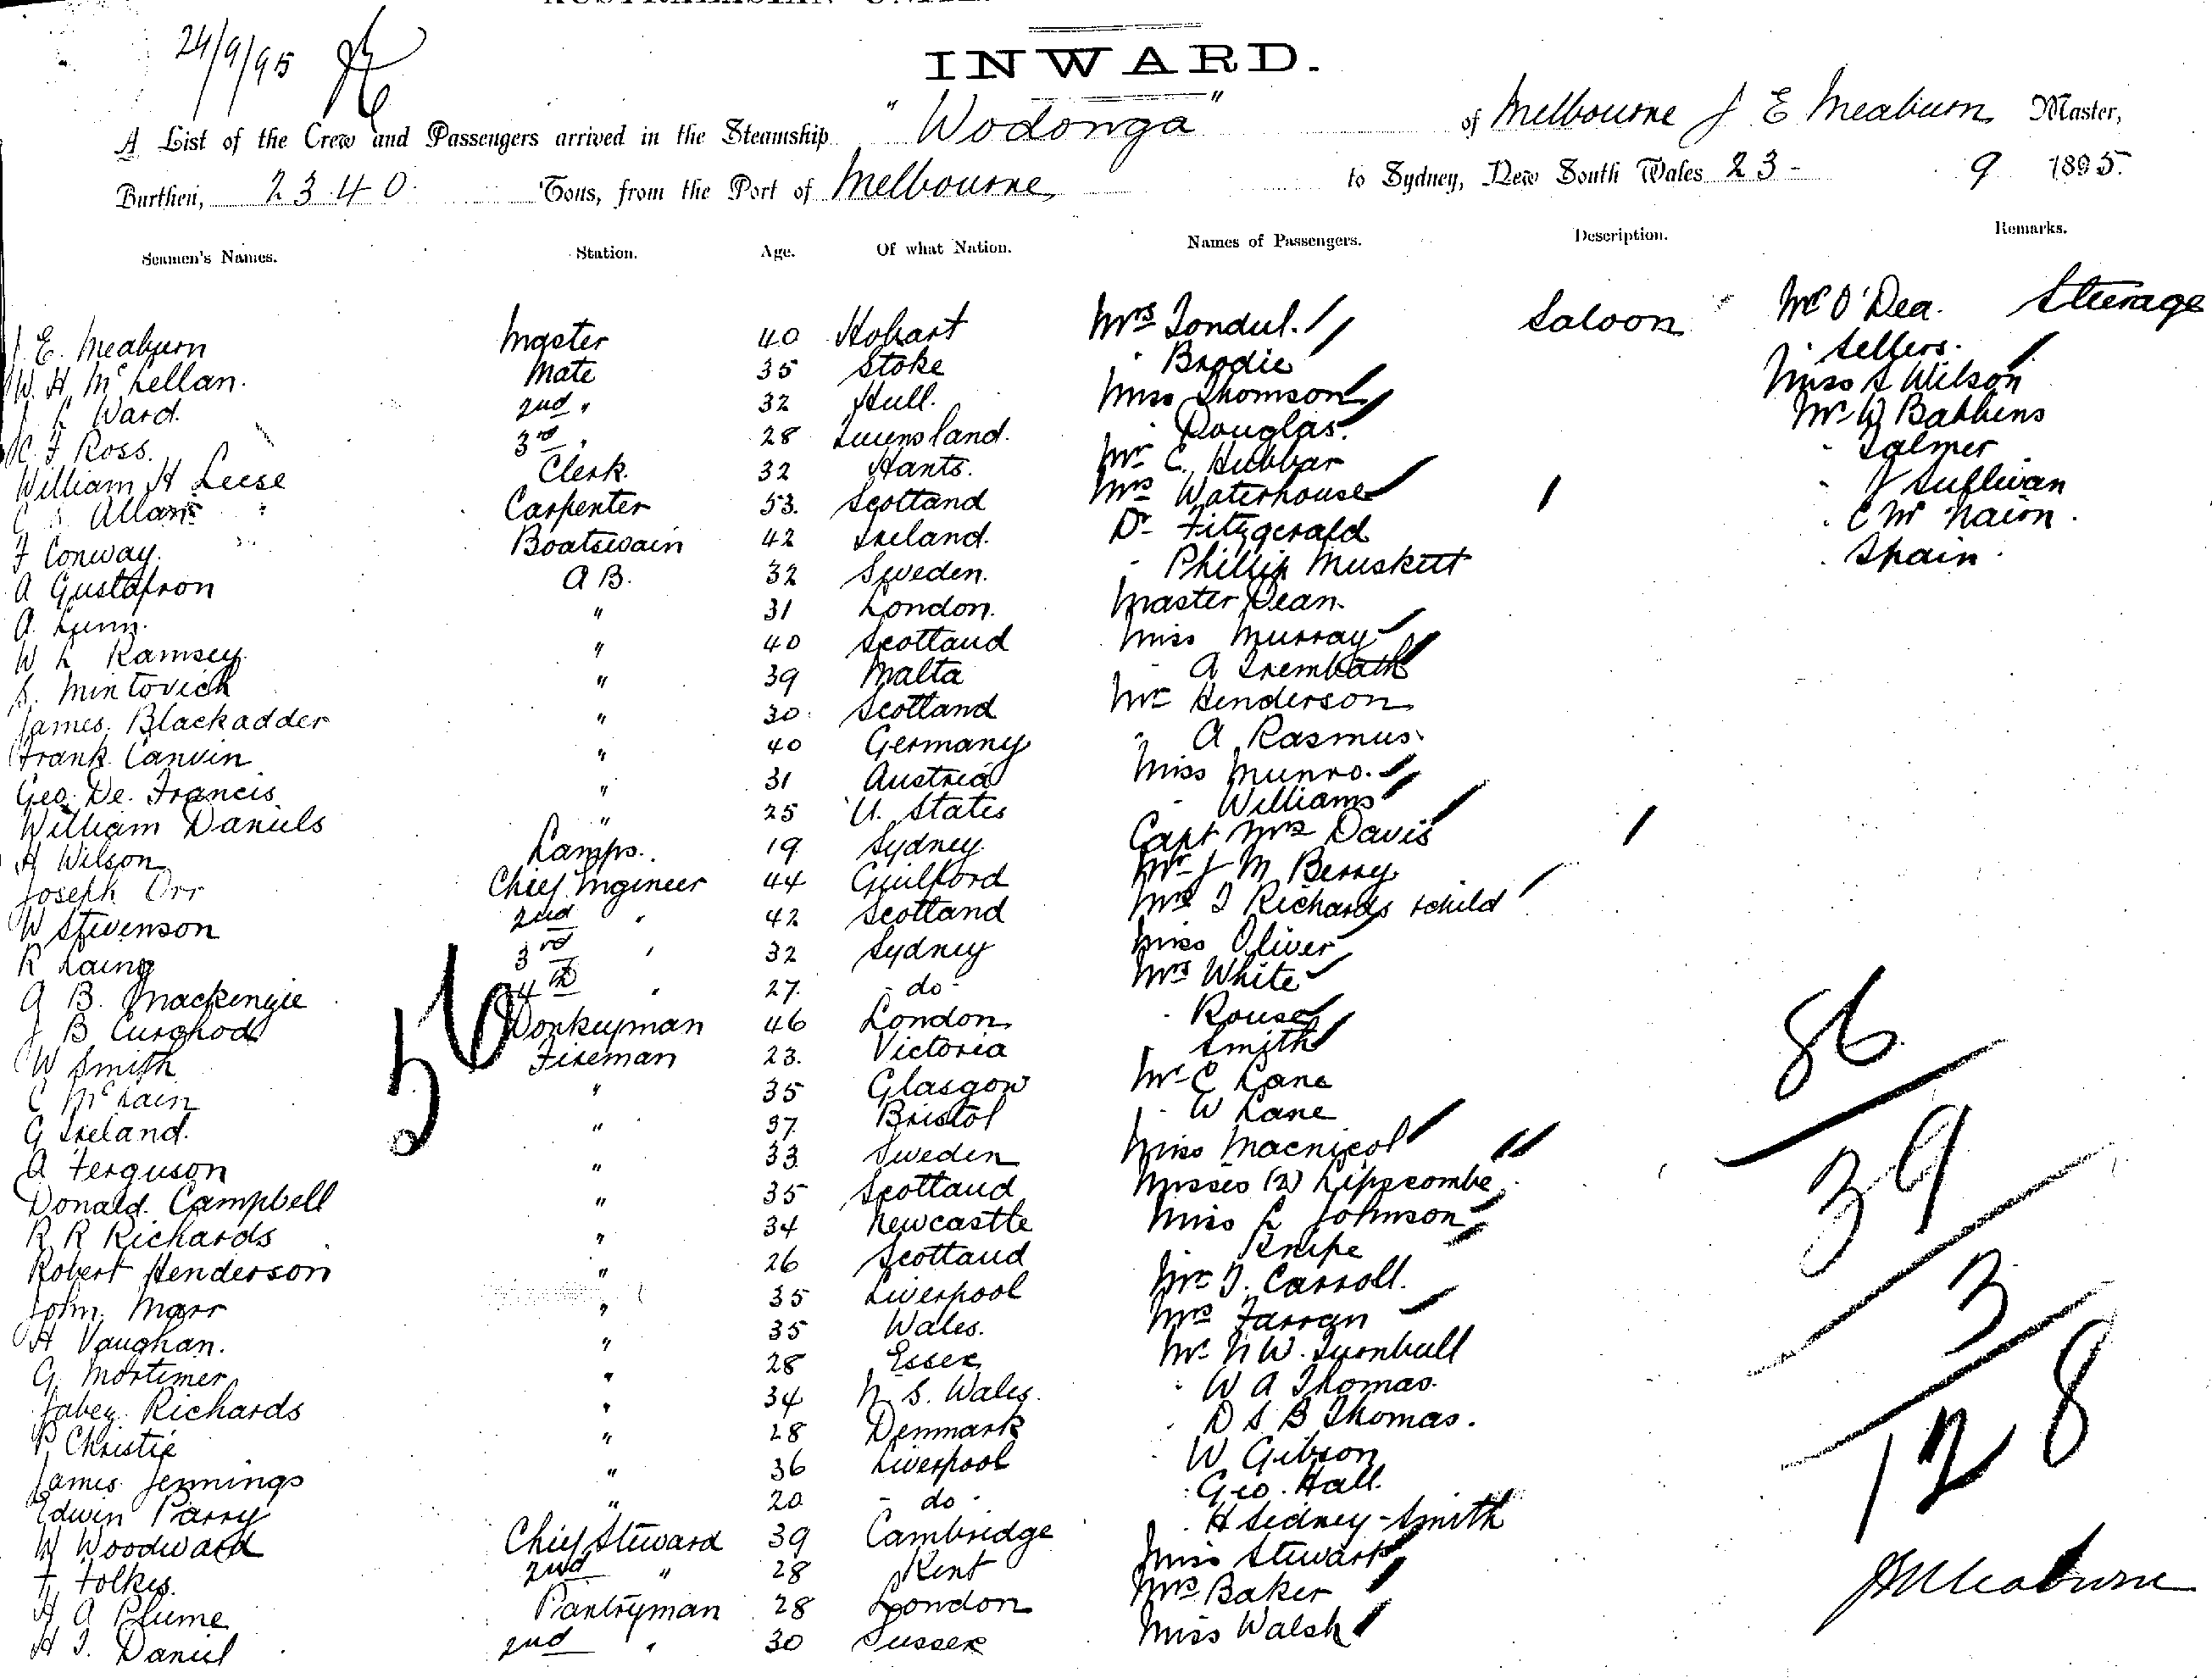 24/9/95
INWARD.
A List of the Crew and Passengers arrived in the Steamship "Wodonga" of Melbourne J E Meaburn Master,
Burthen, 2340 Tons, from the Port of Melbourne to Sydney, New South Wales 23- 9 1895.
Seamen's Names. Station. Age. Of what Nation. Names of Passengers. Description. Remarks.
J. E. Meaburn Master 40 Hobart Mrs Tondul. Saloon Mr O'Dea. Steerage
W. H. McLellan. Mate 35 Stoke " Brodie " Sellers.
J L Ward. 2nd " 32 Hull. Miss Thomson Miss S Wilson
F Ross. 3rd " 28 Queensland. " Douglas. Mr W Babbins
William H Leese Clerk. 32 Hants. Mr C. Hubbar " Salmer
Allan Carpenter 53. Scotland Mrs Waterhouse " J Sullivan
F Conway. Boatswain 42 Ireland. Dr Fitzgerald " C McNairn.
A Gustafson A B. 32 Sweden. " Phillip Muskett " Spain.
A. Lunn. " 31 London. Master Dean.
W L Ramsey " 40 Scotland Miss Murray
S. Mintovich " 39 Malta " A Trembath
James. Blackadder " 30 Scotland Mr Henderson
Frank Canvin " 40 Germany " A Rasmus.
Geo. De. Francis " 31 Austria Miss Munro.
William Daniels " 25 U. States " Williams
H Wilson Lamps. 19 Sydney. Capt Mrs Davis
Joseph Orr Chief Engineer 44 Guilford Mr J M Berry
W Stevenson 2nd " 42 Scotland Mrs T Richards + child
R Laing 3rd " 32 Sydney Miss Oliver
A B. Mackenzie 4th " 27. - do - Mrs White
J B Curghod Donkeyman 46 London " Rouse
W Smith Fireman 23. Victoria " Smith
C McLain " 35 Glasgow Mr C Lane
G Ireland. " 37 Bristol " W Lane
A Ferguson " 33 Sweden Miss Macnicol
Donald. Campbell " 35 Scotland Misses (2) Lippscombe
R R Richards " 34 Newcastle Miss L Johnson
Robert Henderson " 26 Scotland " Knipe
John. Marr " 35 Liverpool Mr T. Carroll.
H Vaughan. " 35 Wales. Mrs Farran
G. Mortimer " 28 Essex Mr N W. Turnbull
Jabez Richards " 34 N. S. Wales. " W A Thomas.
P. Christie " 28 Denmark " D S B Thomas.
James. Jennings " 36 Liverpool " W Gibson
Edwin Parry " 20 - do - " Geo. Hall.
W Woodward Chief Steward 39 Cambridge " H Sidney-Smith
F. Folkes. 2nd " 28 Kent Miss Stewart
H A Plume Pantryman 28 London Mrs Baker
H T. Daniel 2nd " 30 Sussex Miss Walsh
56
86
39
3
128
J E Meaburn